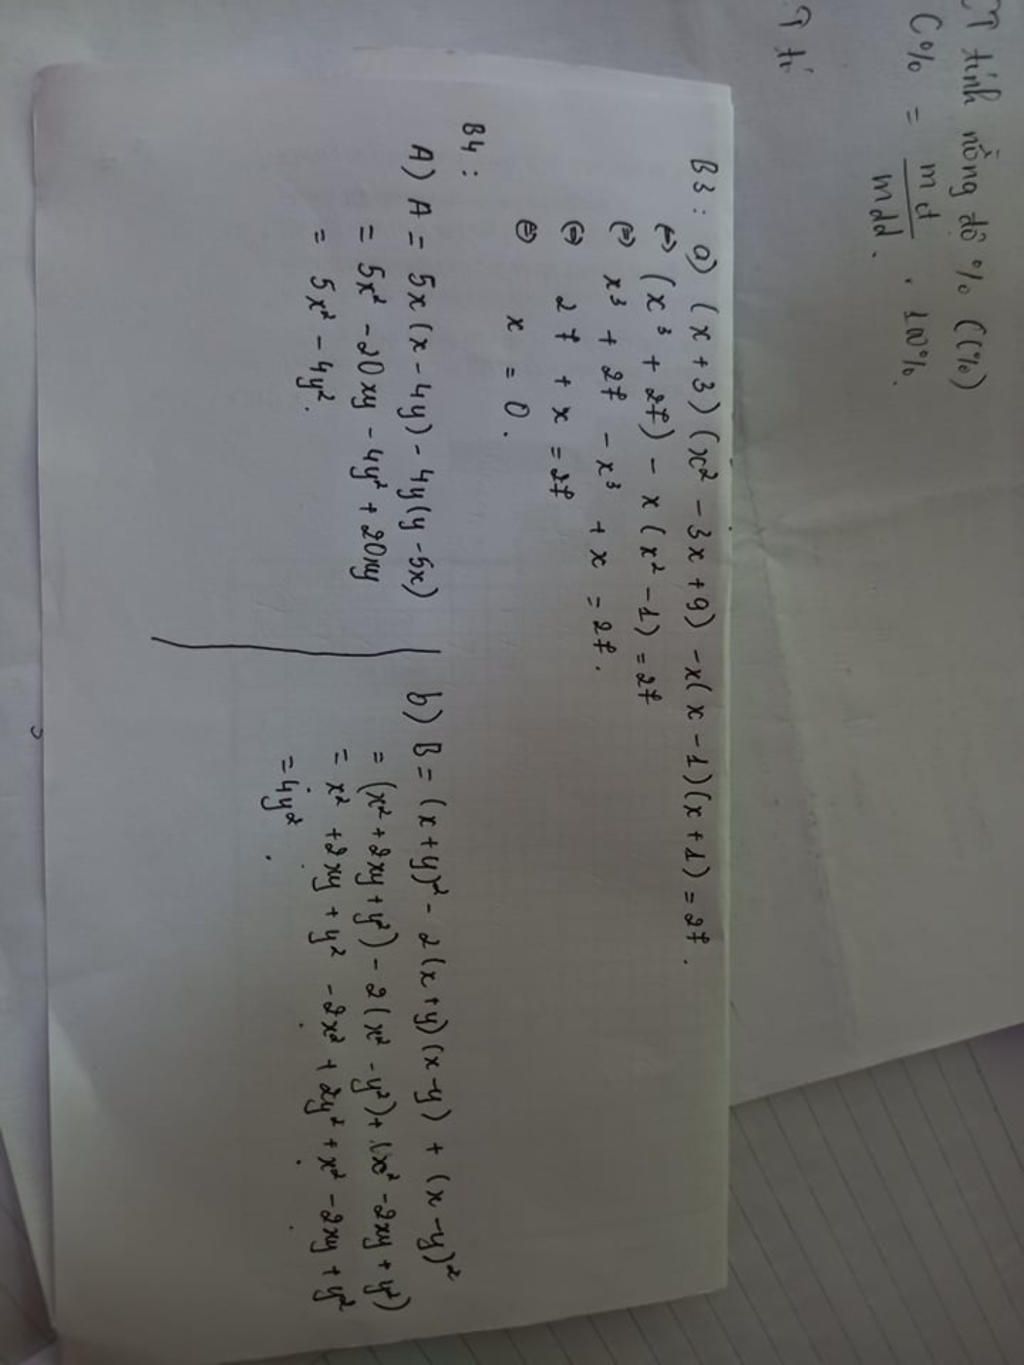 CT tính nồng độ % (C%)
C% = mct / mdd . 100%.
B3 : a) (x+3)(x² - 3x + 9) - x(x - 1)(x + 1) = 27.
⇔ (x³ + 27) - x(x² - 1) = 27
⇔ x³ + 27 - x³ + x = 27.
⇔ 27 + x = 27
⇔ x = 0.
B4 :
A) A = 5x(x - 4y) - 4y(y - 5x)
= 5x² - 20xy - 4y² + 20xy
= 5x² - 4y².
b) B = (x+y)² - 2(x+y)(x-y) + (x-y)²
= (x² + 2xy + y²) - 2(x² - y²) + (x² - 2xy + y²)
= x² + 2xy + y² - 2x² + 2y² + x² - 2xy + y²
= 4y².